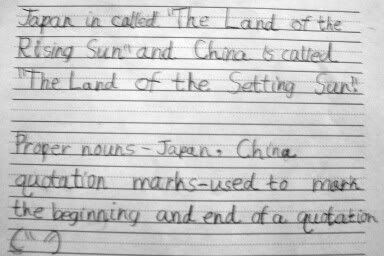 Japan in called "The Land of the
Rising Sun" and China is called
"The Land of the Setting Sun".
Proper nouns - Japan, China
quotation marks-used to mark
the beginning and end of a quotation
(" ")